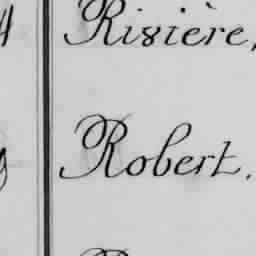 Risière,
Robert.